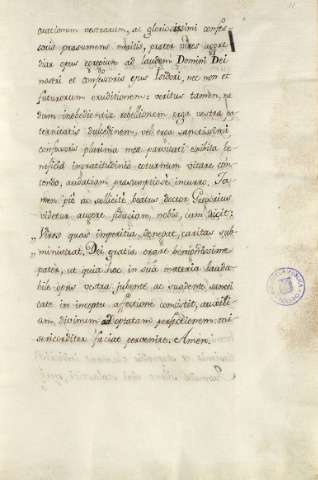 orationum vestrarum, ac gloriosissimi confes-
soris præsumens meritis, præter vires aggre-
diar opus egregium ad laudem Domini Dei
nostri et confessoris ejus Isidori, nec non et
futurorum eruditionem: veritus tamen, ne
dum inobedientiæ rebellionem erga vestra
ternitatis dulcedinem, vel erga sanctissimi
confessoris plurima mea parvitati exhibita be-
neficia ingratitudinis vitare con-
tendo, audaciam præsumptiosè incurro. Ta-
men piè ac sollicitè beatus doctor Gregorius
videtur augere fiduciam nobis, cum dicit:
„Vires quas imperitia denegat, caritas sub-
„ministrat. Dei gratia orare benignissime
pater, ut quia hoc in sua materia lauda-
bile opus vestra jubente ac suadente sancti-
tate in inepto affectione consistit, auxili-
um divinum ad optatam perfectionem mi-
sericorditer faciat pervenire. Amen.